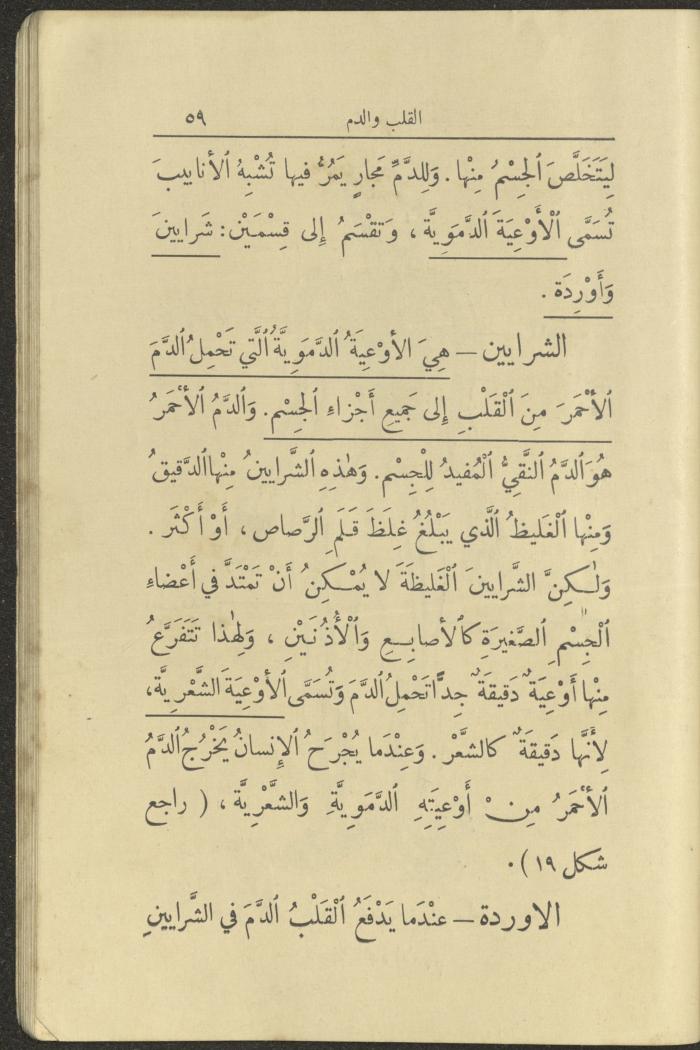 القلب والدم ٥٩
لِيَتَخَلَّصَ ٱلْجِسْمُ مِنْها . وَلِلدَّمِّ مَجارٍ يَمُرُّ فيها تُشْبِهُ ٱلأنابيبَ
تُسَمَّى ٱلْأَوْعِيَةَ ٱلدَّمَوِيَّةَ ، وَتَقْسَمُ إِلى قِسْمَيْن : شَرايينَ
وَأَوْرِدَة .
الشرايين — هِيَ ٱلأوْعِيَةُ ٱلدَّمَوِيَّةُ ٱلَّتي تَحْمِلُ ٱلدَّمَ
ٱلأَحْمَرَ مِنَ ٱلْقَلْبِ إِلى جَميعِ أَجْزاءِ ٱلْجِسْم . وَٱلدَّمُ ٱلأَحْمَرُ
هُوَ ٱلدَّمُ ٱلنَّقِيُّ ٱلْمُفيدُ لِلْجِسْم . وَهٰذِهِ ٱلشَّرايينُ مِنْها ٱلدَّقيقُ
وَمِنْها ٱلْغَليظُ ٱلَّذي يَبْلُغُ غِلَظَ قَلَمِ ٱلرَّصاص ، أَوْ أَكْثَر .
وَلٰكِنَّ الشَّرايينَ ٱلْغَليظَةَ لا يُمْكِنُ أَنْ تَمْتَدَّ في أَعْضاءِ
ٱلْجِسْمِ ٱلصَّغيرَةِ كَٱلأصابِعِ وَٱلْأُذُنَيْنِ ، وَلِهٰذا تَتَفَرَّعُ
مِنْها أَوْعِيَةٌ دَقيقَةٌ جِدًّا تَحْمِلُ ٱلدَّمَ وَتُسَمَّى ٱلأَوْعِيَةَ الشَّعْرِيَّة ،
لِأَنَّها دَقيقَةٌ كالشَّعْر . وَعِنْدَما يُجْرَحُ ٱلإِنسانُ يَخْرُجُ ٱلدَّمُ
ٱلأَحْمَرُ مِنْ أَوْعِيَتِهِ ٱلدَّمَوِيَّةِ وَالشَّعْرِيَّة ، ( راجع
شكل ١٩ ) .
الاوردة — عنْدَما يَدْفَعُ ٱلْقَلْبُ ٱلدَّمَ في الشَّرايينِ